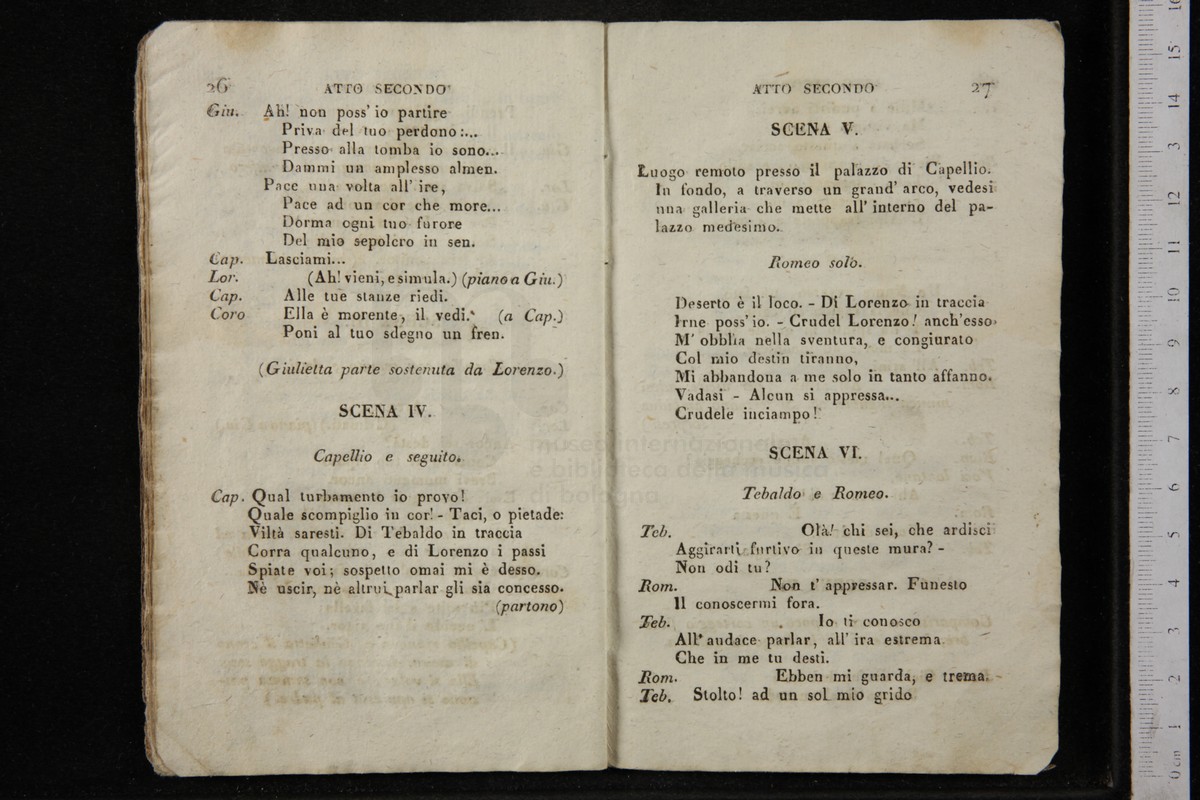 26 ATTO SECONDO
Giu. Ah! non poss' io partire
Priva del tuo perdono:...
Presso alla tomba io sono...
Dammi un amplesso almen.
Pace una volta all' ire,
Pace ad un cor che more...
Dorma ogni tuo furore
Del mio sepolcro in sen.
Cap. Lasciami...
Lor. (Ah! vieni, e simula.) (piano a Giu.)
Cap. Alle tue stanze riedi.
Coro Ella è morente, il vedi. (a Cap.)
Poni al tuo sdegno un fren.
(Giulietta parte sostenuta da Lorenzo.)
SCENA IV.
Capellio e seguito.
Cap. Qual turbamento io provo!
Quale scompiglio in cor! - Taci, o pietade:
Viltà saresti. Di Tebaldo in traccia
Corra qualcuno, e di Lorenzo i passi
Spiate voi; sospetto omai mi è desso.
Nè uscir, nè altrui parlar gli sia concesso.
(partono)
ATTO SECONDO 27
SCENA V.
Luogo remoto presso il palazzo di Capellio.
In fondo, a traverso un grand' arco, vedesi
una galleria che mette all' interno del pa-
lazzo medesimo.
Romeo solo.
Deserto è il loco. - Di Lorenzo in traccia
Irne poss' io. - Crudel Lorenzo! anch'esso
M' obblia nella sventura, e congiurato
Col mio destin tiranno,
Mi abbandona a me solo in tanto affanno.
Vadasi - Alcun si appressa...
Crudele inciampo!
SCENA VI.
Tebaldo e Romeo.
Teb. Olà! chi sei, che ardisci
Aggirarti furtivo in queste mura? -
Non odi tu?
Rom. Non t' appressar. Funesto
Il conoscermi fora.
Teb. Io ti conosco
All' audace parlar, all' ira estrema
Che in me tu desti.
Rom. Ebben mi guarda, e trema.
Teb. Stolto! ad un sol mio grido
museo internazionale
e biblioteca della musica
di bologna
0 cm 1 2 3 4 5 6 7 8 9 10 11 12 13 14 15 16